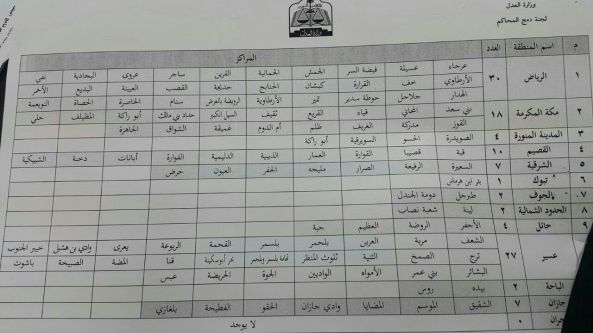 وزارة العدل
لجنة دمج المحاكم
م اسم المنطقة العدد المراكز
١ الرياض ٣٠ عرجاء عسيلة فيضة السر الخمش الجمانية القرين ساجر عروى البجادية نفي
الأرطاوي حف القرارة كبشان الخنابج حديجة القصب العيينة البديع الأحمر
الهدار جلاجل حوطة سدير تمير الأرطاوية الرويضة بالعرض سنام الخاصرة الحصاة النويعمة
٢ مكة المكرمة ١٨ بني سعد المحاني قياء القريع ثقيف السيل الكبير حداد بني مالك أبو راكة المظيلف حلي
القوز مدركة الغريف ظلم أم الدوم غميقة الشواق الجاهزة
٣ المدينة المنورة ٤ الصويدرة الحسو السويرقية أبو راكة
٤ القصيم ١٠ قبة قصيبا القوارة العمار الذيبية الدليمية الفوارة أبانات دخنة الشبيكية
٥ الشرقية ٧ السعيرة الرفيعة الصرار مليجه الحفر العيون حرض
٦ تبوك ١ بئر ابن هرماس
٧ الجوف ٢ طبرجل دومة الجندل
٨ الحدود الشمالية ٢ لينة شعبة نصاب
٩ حائل ٤ الأجفر الروضة العظيم جبة
عسير ٢٧ الشعف مربة العرين بلحمر بلسمر القحمة الربوعة يعرى وادي بن هشبل خيبر الجنوب
ترج الصمخ الثنية ثلوث المنظر بحر أبوسكينة قنا المضة الصبيحة باشوت
البشائر بني عمر الأمواه الواديين الجوة الحريضة عبس
الباحة ٢ بيده روس
جازان ٧ الشقيق الموسم المضايا وادي جازان الحقو الفطيحة بلغازي
نجران ٠ لا يوجد